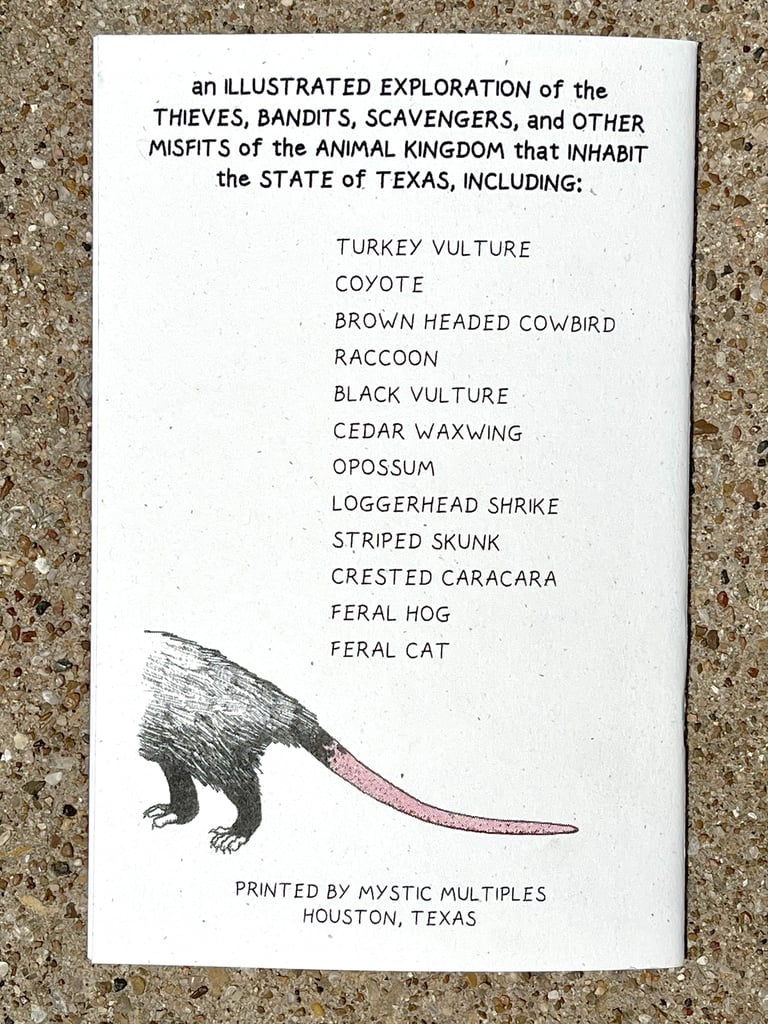 an ILLUSTRATED EXPLORATION of the
THIEVES, BANDITS, SCAVENGERS, and OTHER
MISFITS of the ANIMAL KINGDOM that INHABIT
the STATE of TEXAS, INCLUDING:
TURKEY VULTURE
COYOTE
BROWN HEADED COWBIRD
RACCOON
BLACK VULTURE
CEDAR WAXWING
OPOSSUM
LOGGERHEAD SHRIKE
STRIPED SKUNK
CRESTED CARACARA
FERAL HOG
FERAL CAT
PRINTED BY MYSTIC MULTIPLES
HOUSTON, TEXAS